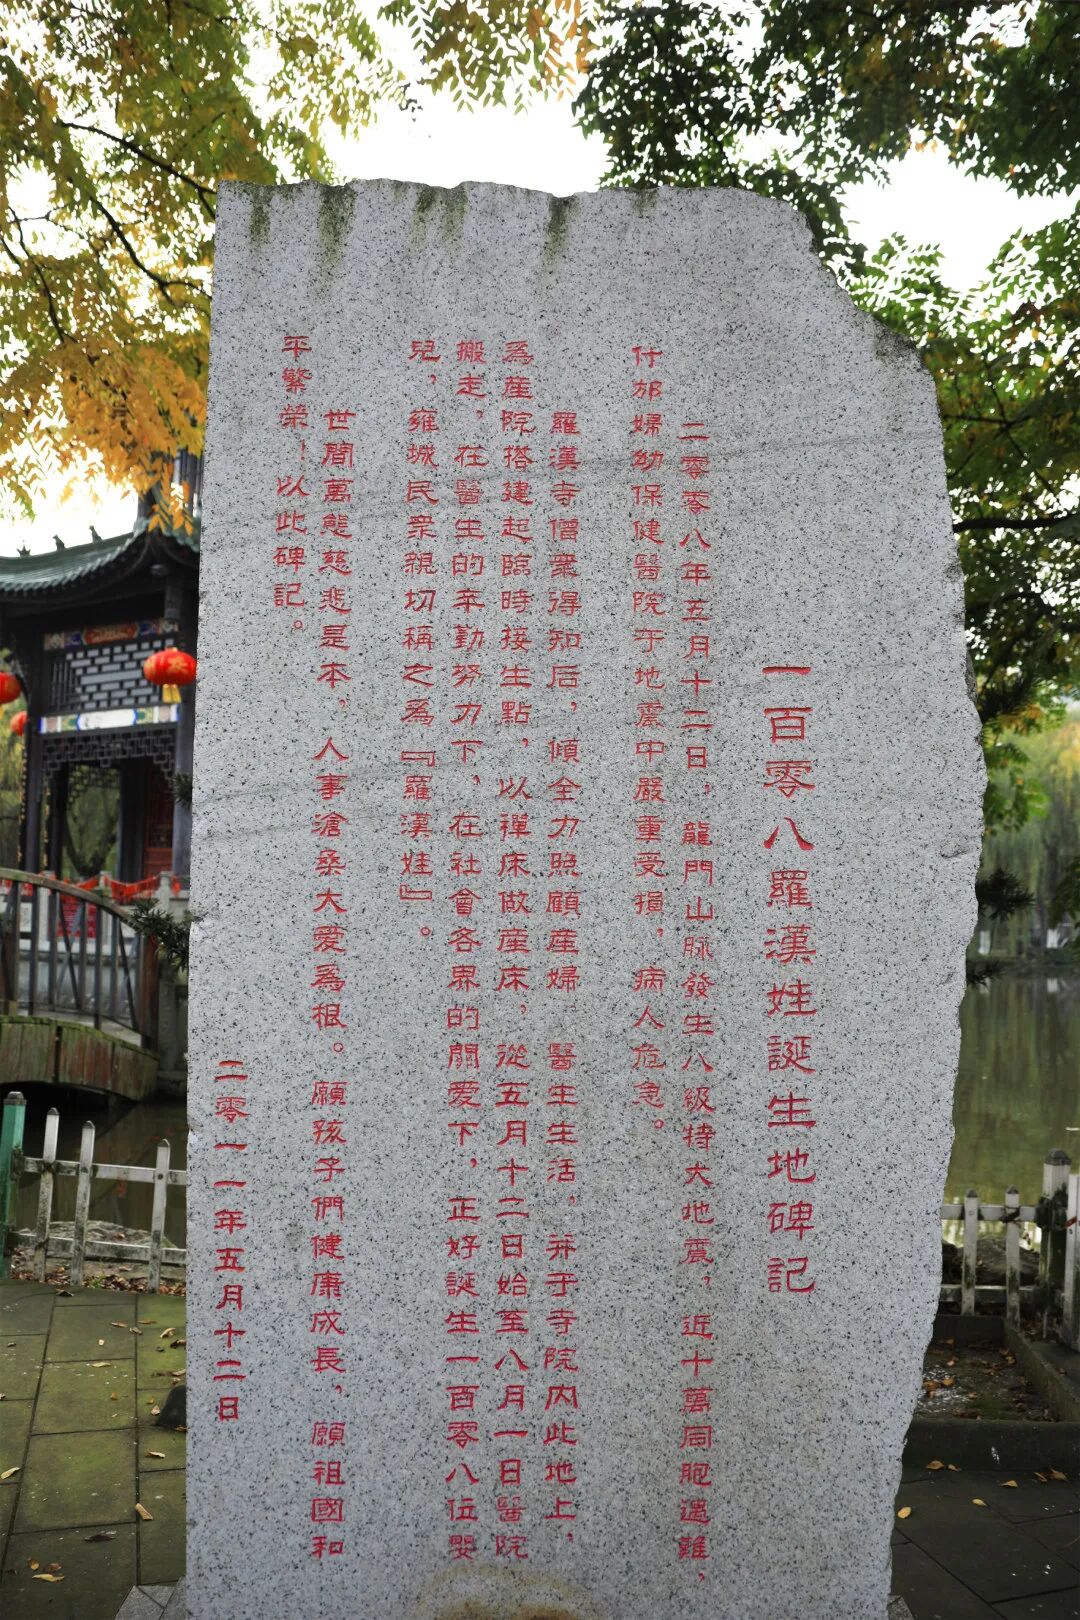 一百零八羅漢娃誕生地碑記
二零零八年五月十二日，龍門山脉發生八級特大地震，近十萬同胞遇難，
什邡婦幼保健醫院于地震中嚴重受損，病人危急。
羅漢寺僧衆得知后，傾全力照顧産婦 醫生生活，并于寺院内此地上，
爲産院搭建起臨時接生點，以禪床做産床，從五月十二日始至八月一日醫院
搬走，在醫生的辛勤努力下，在社會各界的關爱下，正好誕生一百零八位嬰
兒，雍城民衆親切稱之爲『羅漢娃』。
世間萬態慈悲是本，人事滄桑大爱爲根。願孩子們健康成長，願祖國和
平繁榮！以此碑記。
二零一一年五月十二日